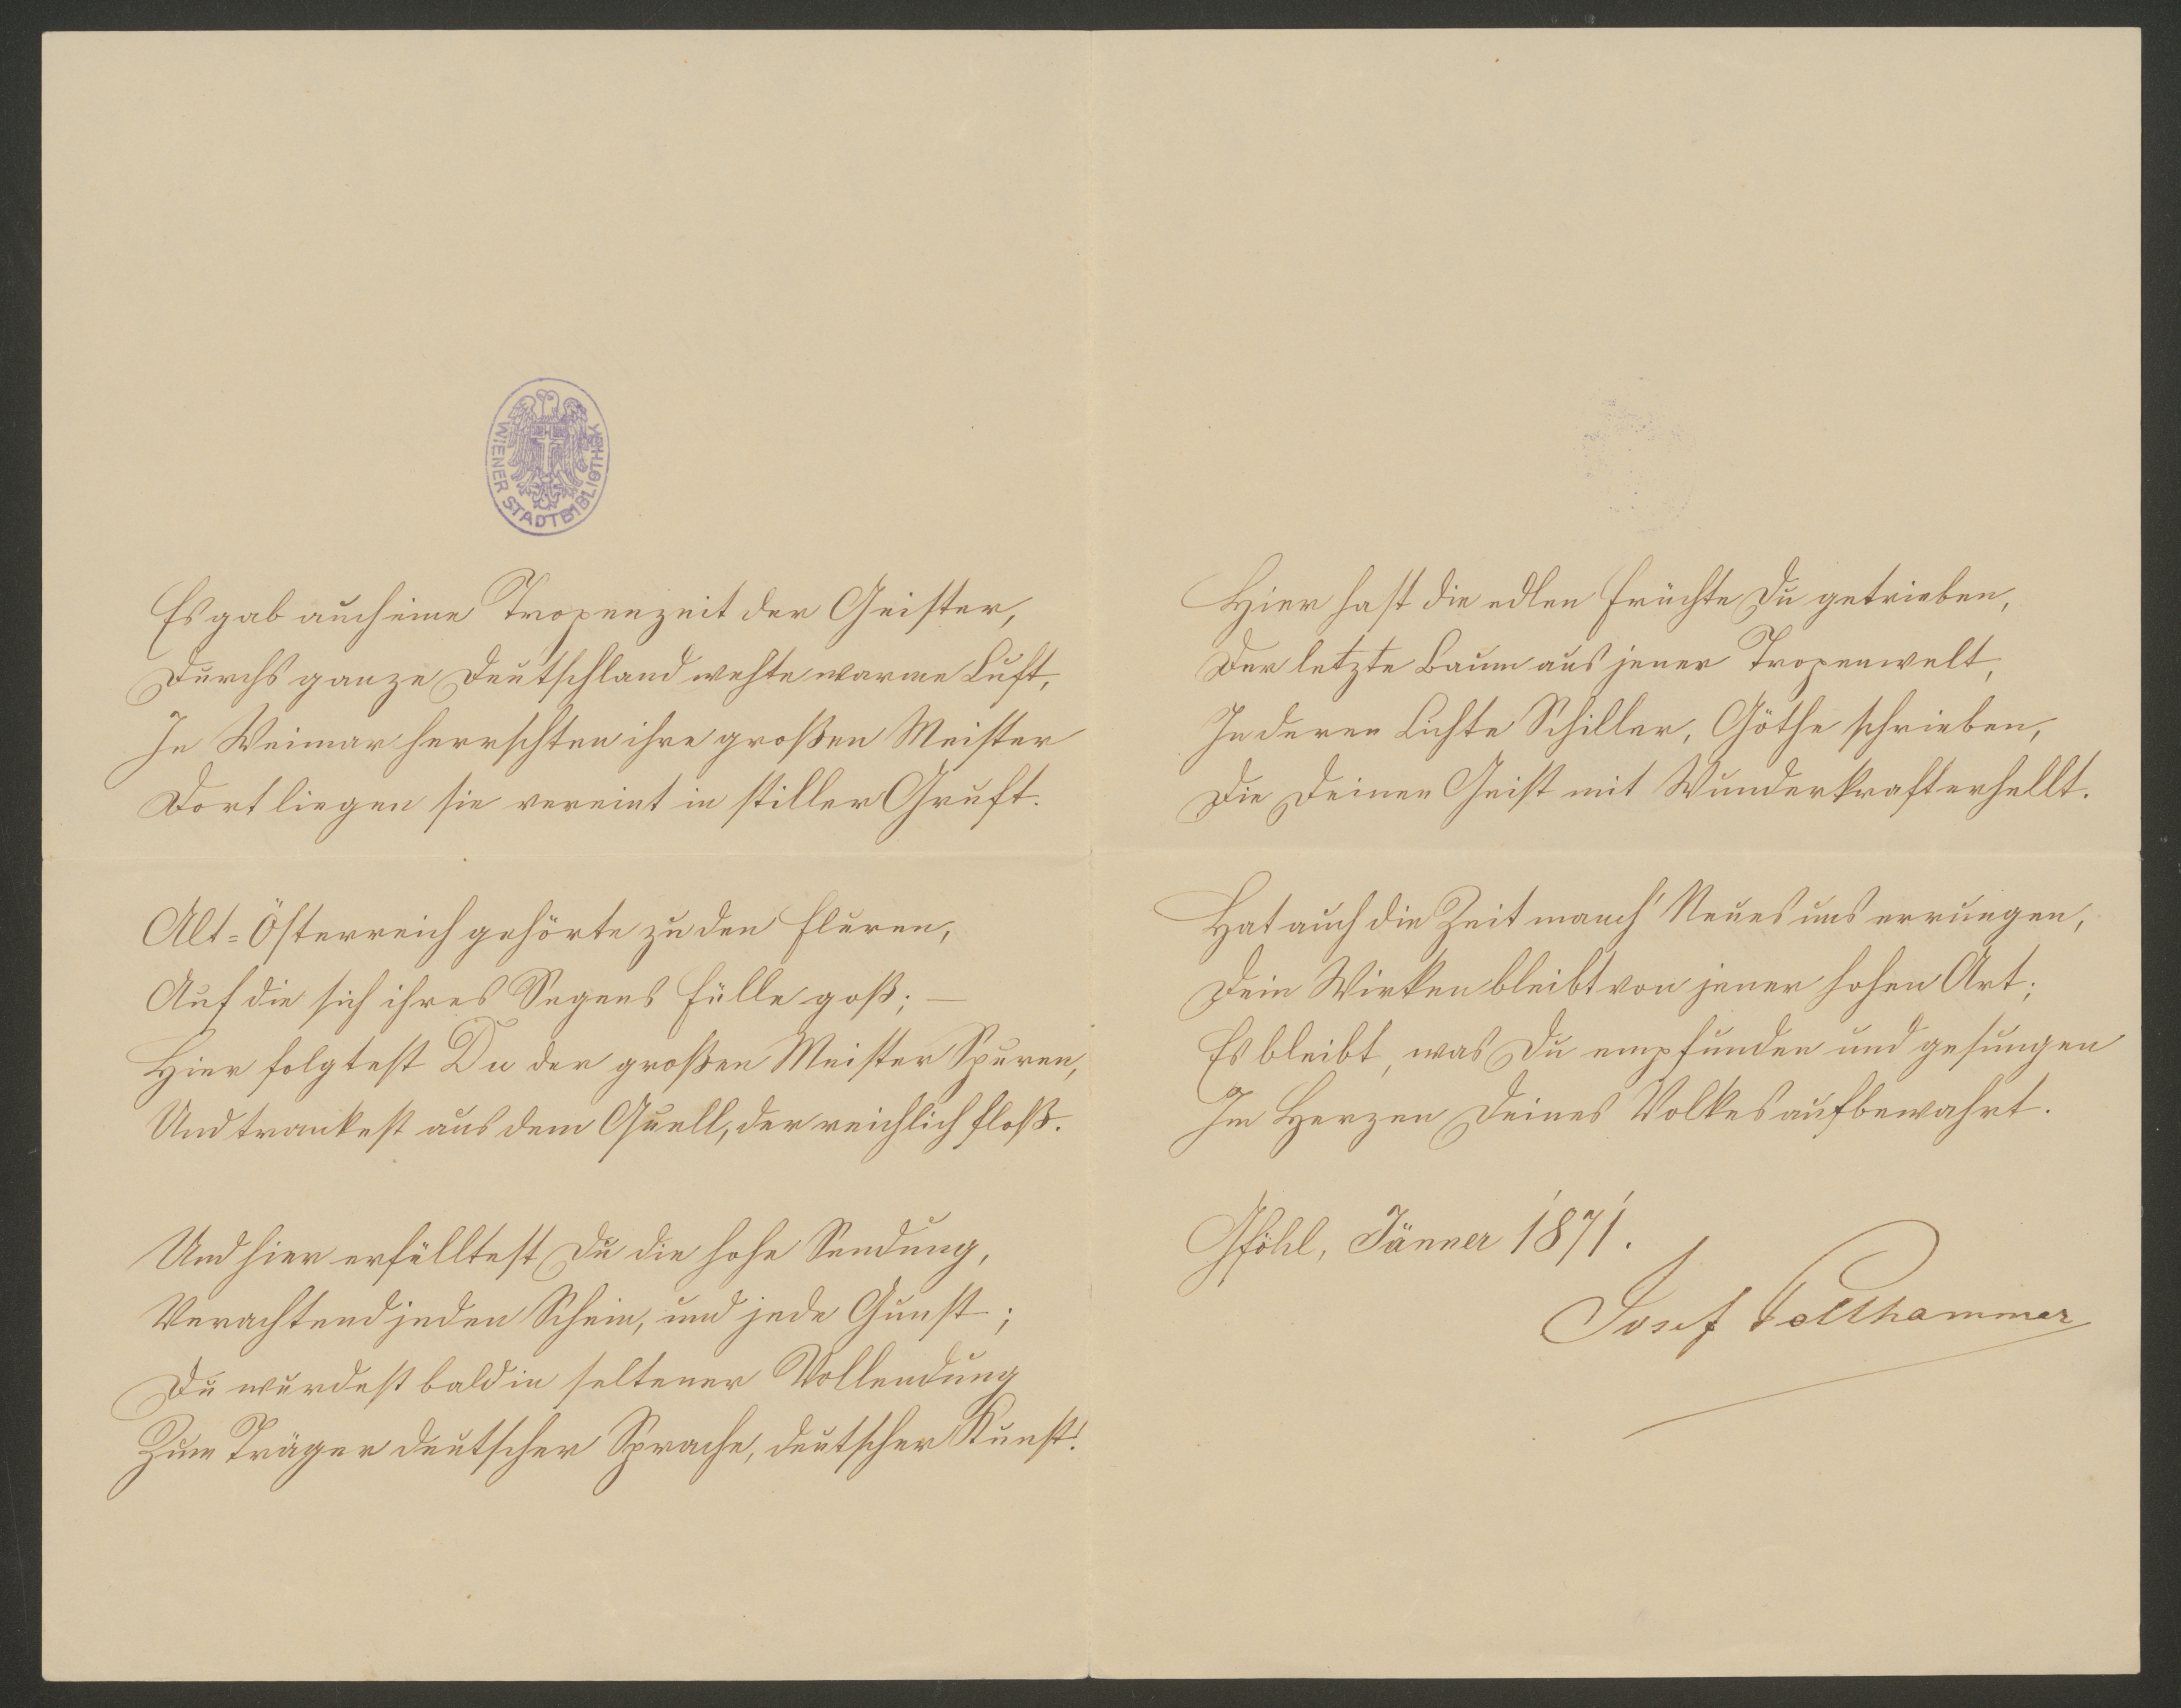 WIENER STADTBIBLIOTHEK
Es gab auch eine Tropenzeit der Geister,
Durchs ganze Deutschland wehte warme Luft,
In Weimar herrschten ihre großen Meister
Dort liegen sie vereint in stiller Gruft.
Alt-Österreich gehörte zu den Fluren,
Auf die sich ihres Segens Fülle goß; —
Hier folgtest Du der großen Meister Spuren,
Und trankest aus dem Quell, der reichlich floß.
Und hier erfülltest Du die hohe Sendung,
Verachtend jeden Schein, und jede Gunst;
Du wurdest bald in seltener Vollendung
Zum Träger deutscher Sprache, deutscher Kunst!
Hier hast die edlen Früchte Du getrieben,
Der letzte Baum aus jener Tropenwelt,
In deren Lichte Schiller, Göthe schrieben,
Die Deinen Geist mit Wunderkraft erhellt.
Hat auch die Zeit manch' Neues uns errungen,
Dein Wirken bleibt von jener hohen Art;
Es bleibt, was Du empfunden und gesungen
Im Herzen Deines Volkes aufbewahrt.
Gföhl, Jänner 1871.
Josef